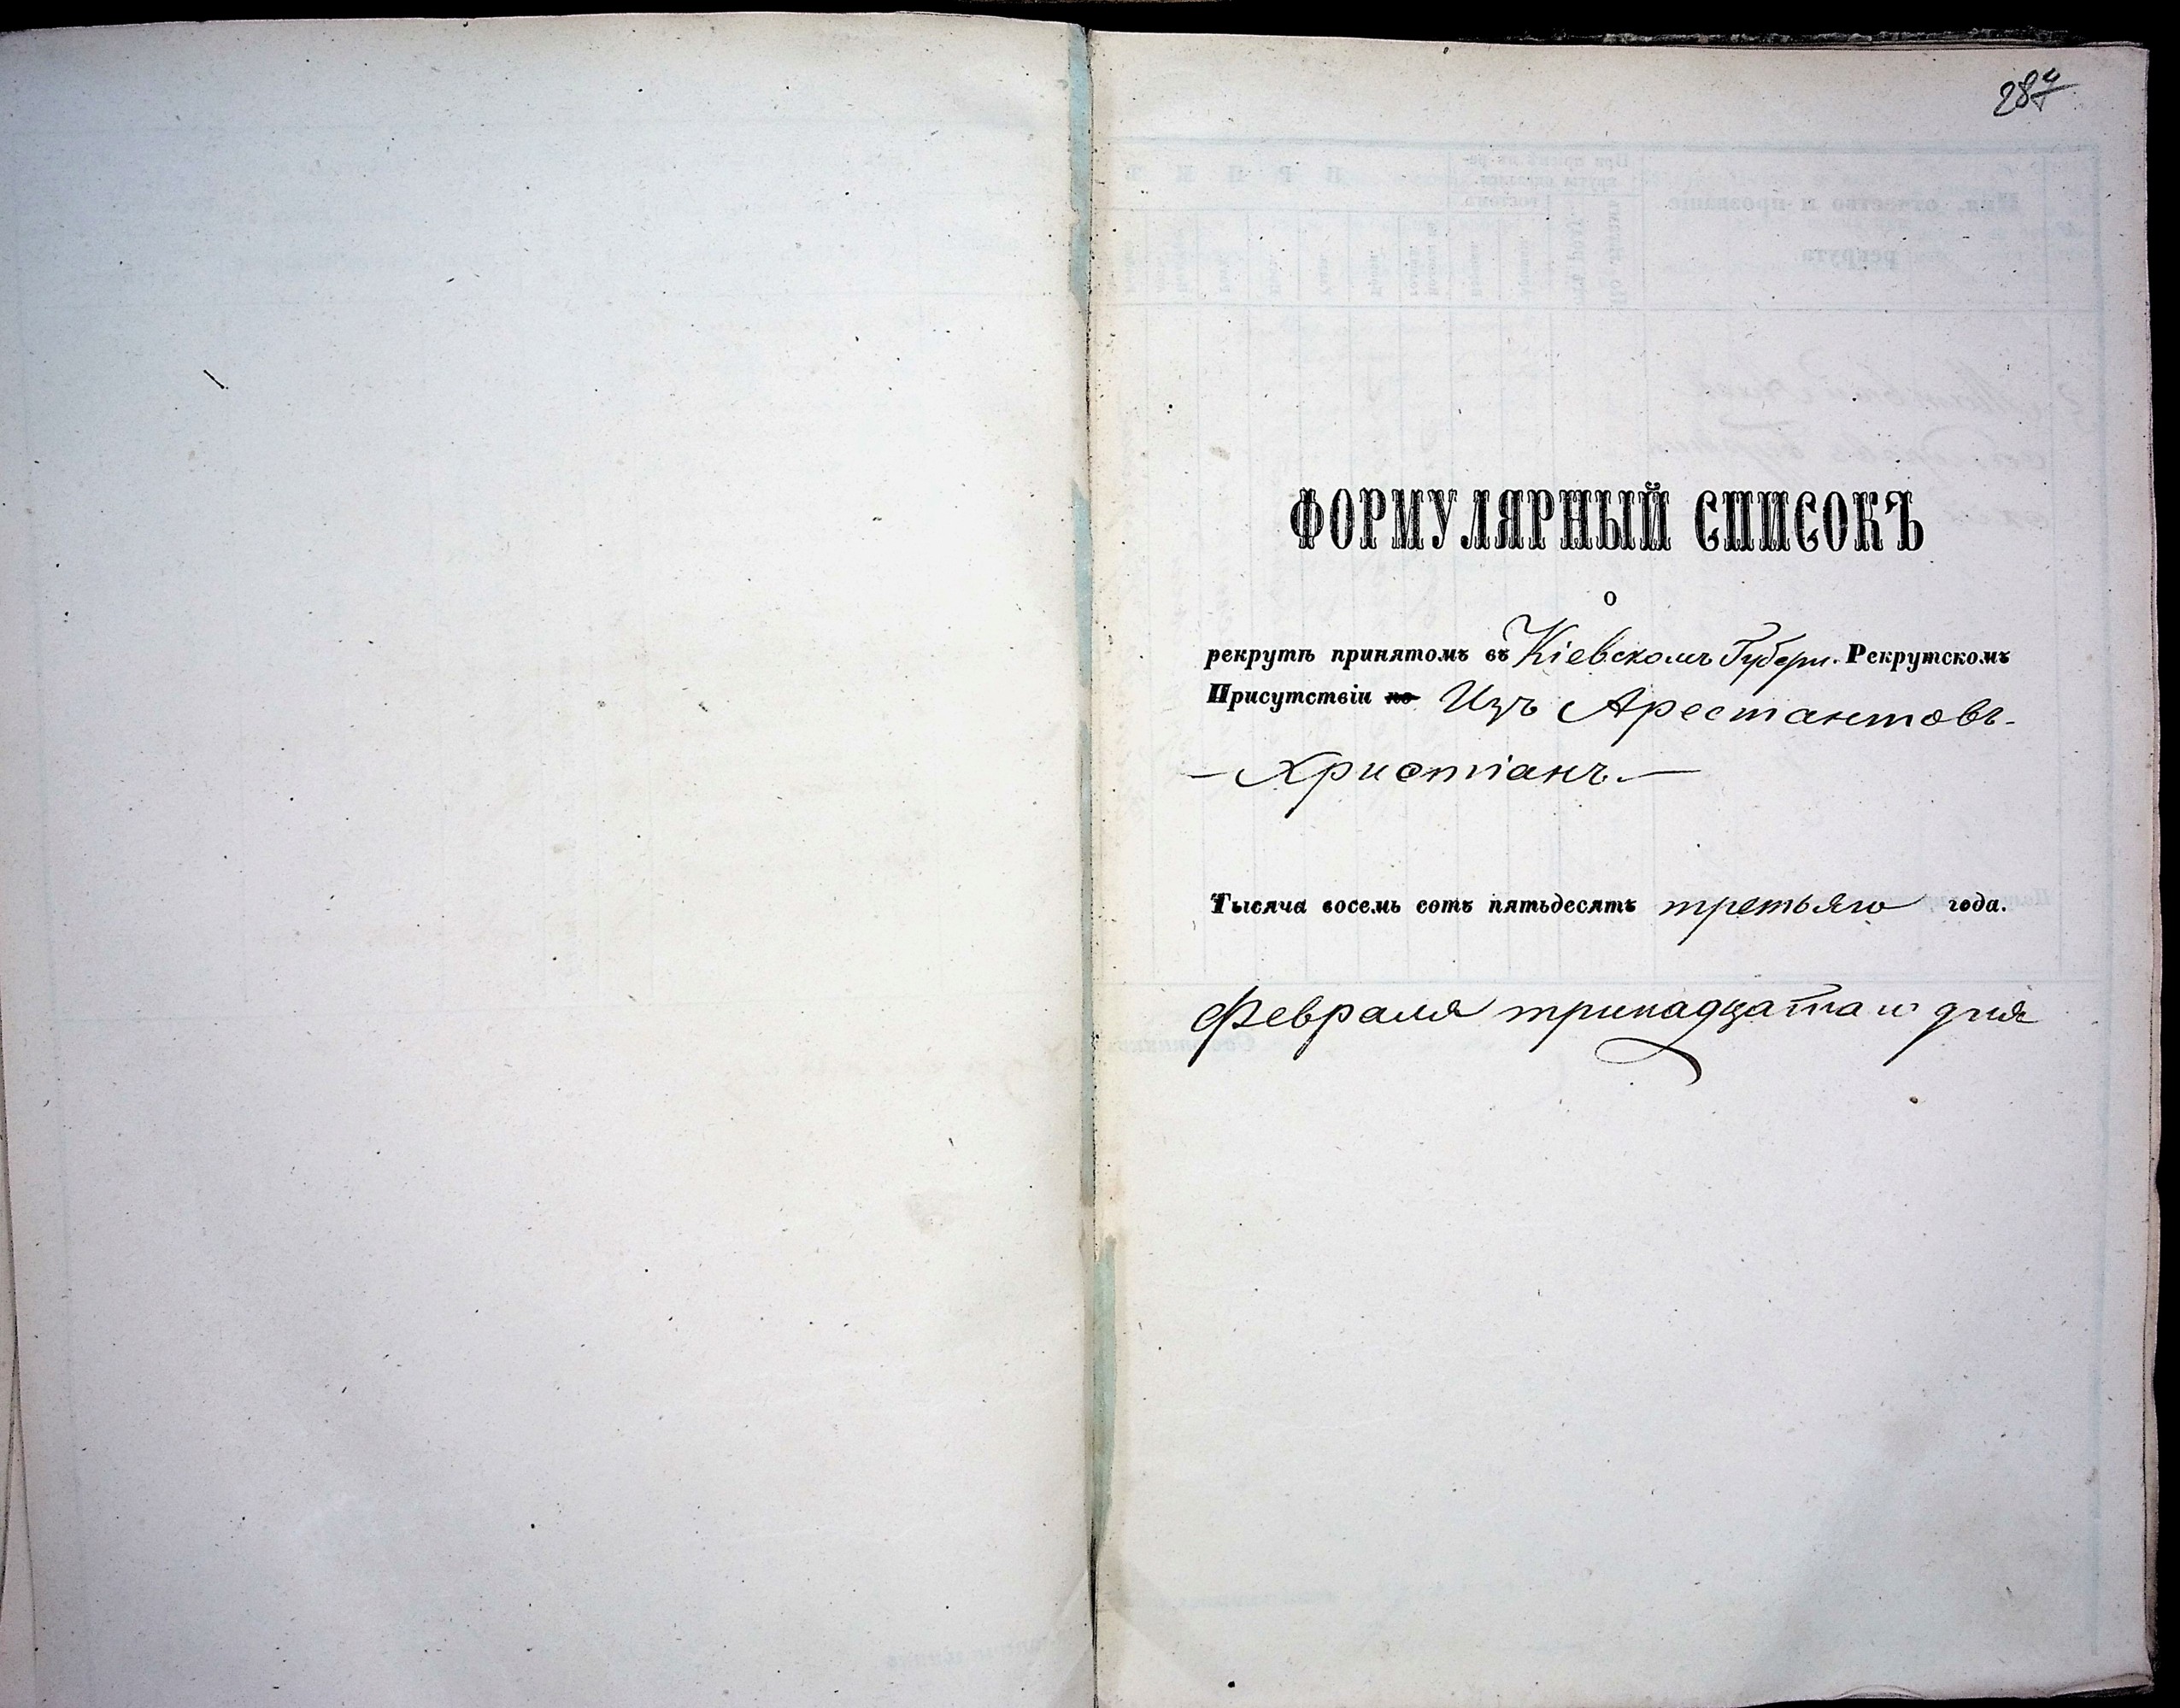 ФОРМУЛЯРНЫЙ СПИСОКЪ
о
рекрутѣ принятомъ въ Кіевскомъ Губерн. Рекрутскомъ
Присутствіи по Изъ Арестантовъ-
— Христіанъ. —
Тысяча восемь сотъ пятьдесятъ третьяго года.
Февраля тринадцатаго дня